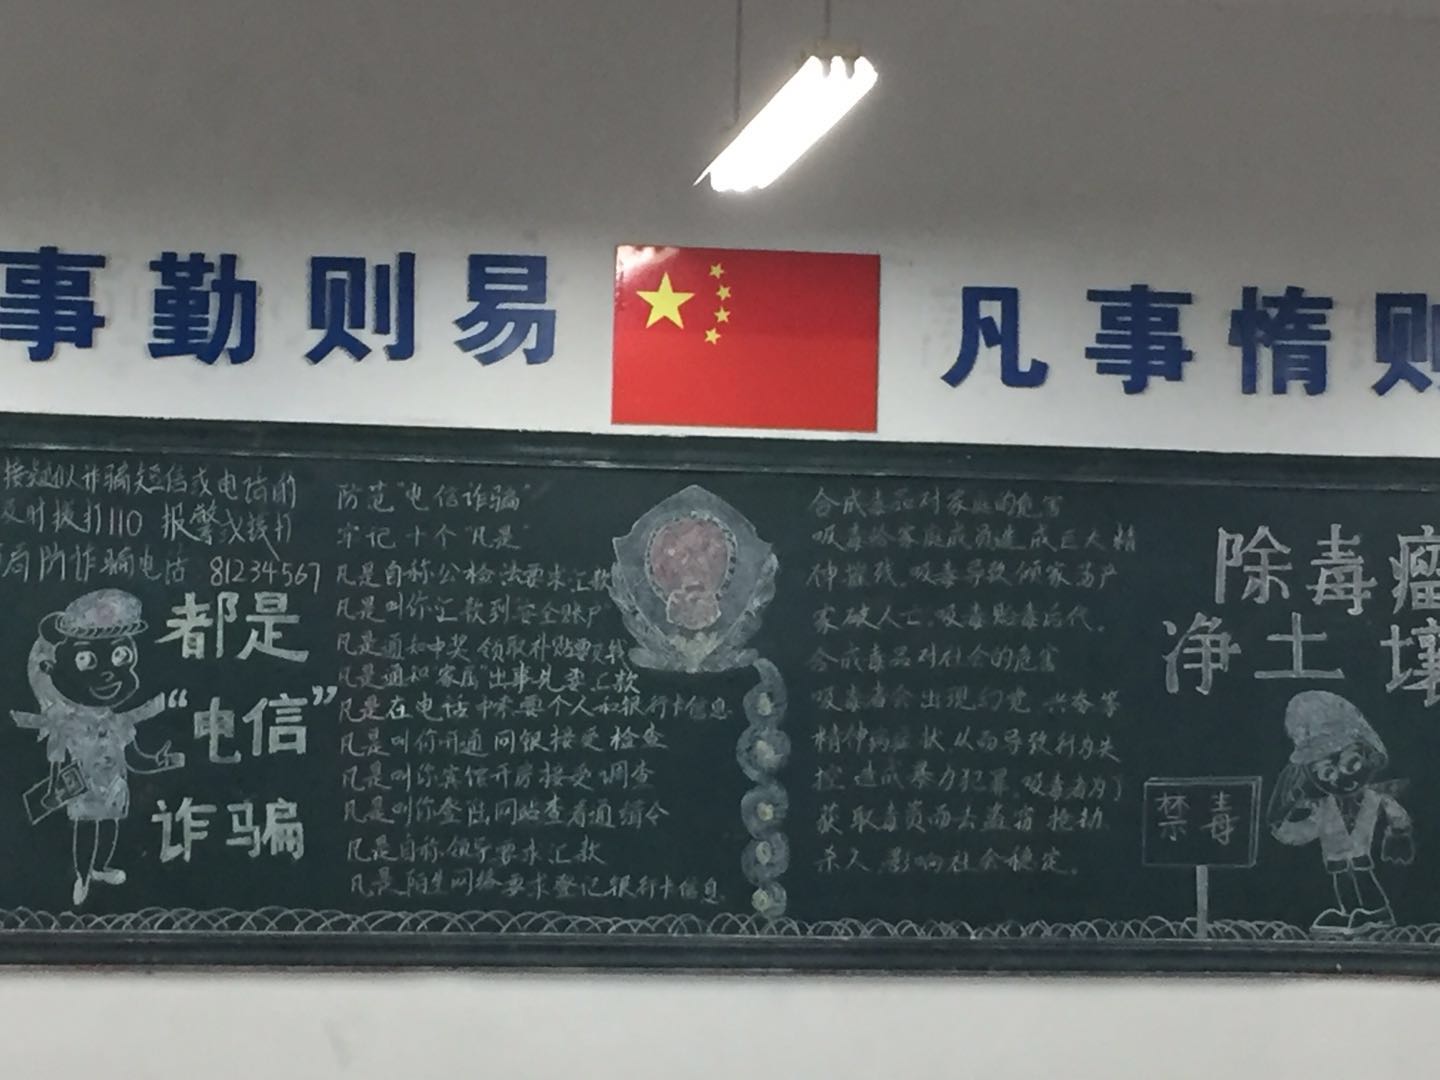 事勤则易
凡事惰则
接疑似诈骗短信或电话的
及时拨打110 报警或拨打
局防诈骗电话 81234567
都是
“电信”
诈骗
防范“电信诈骗”
牢记十个“凡是”
凡是自称公检法要求汇款
凡是叫你汇款到安全账户
凡是通知中奖 领取补贴要钱
凡是通知“家属”出事先要汇款
凡是在电话中索要个人和银行卡信息
凡是叫你开通网银接受检查
凡是叫你宾馆开房接受调查
凡是叫你登陆网站查看通缉令
凡是自称领导要求汇款
凡是陌生网络要求登记银行卡信息
合成毒品对家庭的危害
吸毒给家庭成员造成巨大精
神摧残，吸毒导致倾家荡产
家破人亡，吸毒贻毒后代。
合成毒品对社会的危害
吸毒者会出现幻觉 兴奋等
精神病症状从而导致行为失
控 造成暴力犯罪，吸毒者为了
获取毒资而去盗窃 抢劫
杀人，影响社会稳定。
除毒瘤
净土壤
禁毒